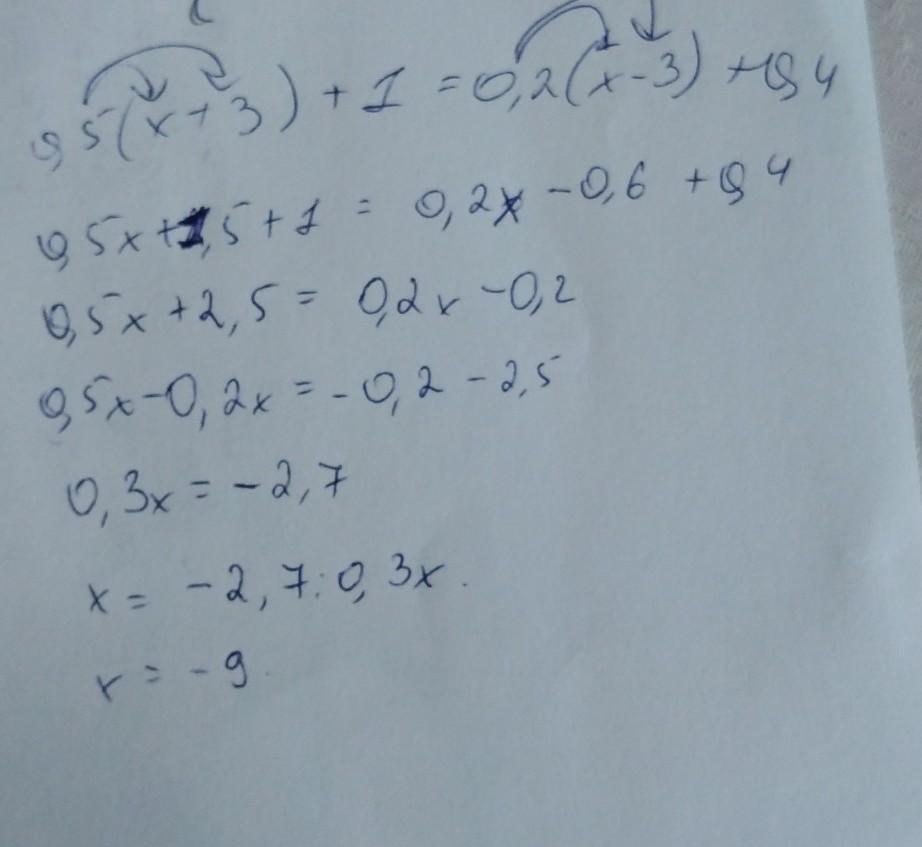 0,5(x+3)+1=0,2(x-3)+0,4
0,5x+1,5+1= 0,2x-0,6 +0,4
0,5x+2,5= 0,2x-0,2
0,5x-0,2x=-0,2-2,5
0,3x=-2,7
x= -2,7:0,3x.
x=-9.